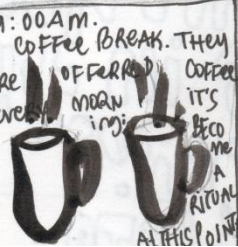 :00AM.
COFFEE BREAK. THEY
RE OFFERRED COFFEE
EVERY MORN IT'S
ing: BECO
ME
A
RITUAL
AT THIS POINT